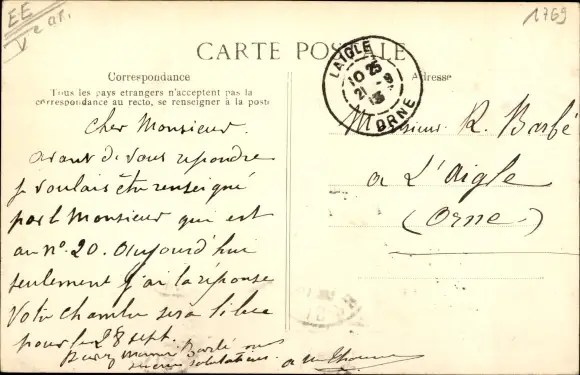 EE
Ve ar.
1769
CARTE POSTALE
Correspondance
Tous les pays étrangers n'acceptent pas la
correspondance au recto, se renseigner à la poste
Adresse
LAIGLE
10 25
21 - 9
ORNE
Cher Monsieur.
avant de vous repondre
je voulais être renseigné
par le Monsieur qui est
au n°. 20. aujourd'hui
seulement j'ai la réponse
Votre chambre sera libre
pour le 28 sept.
Monsieur R. Barbé
a L'aigle
(Orne)